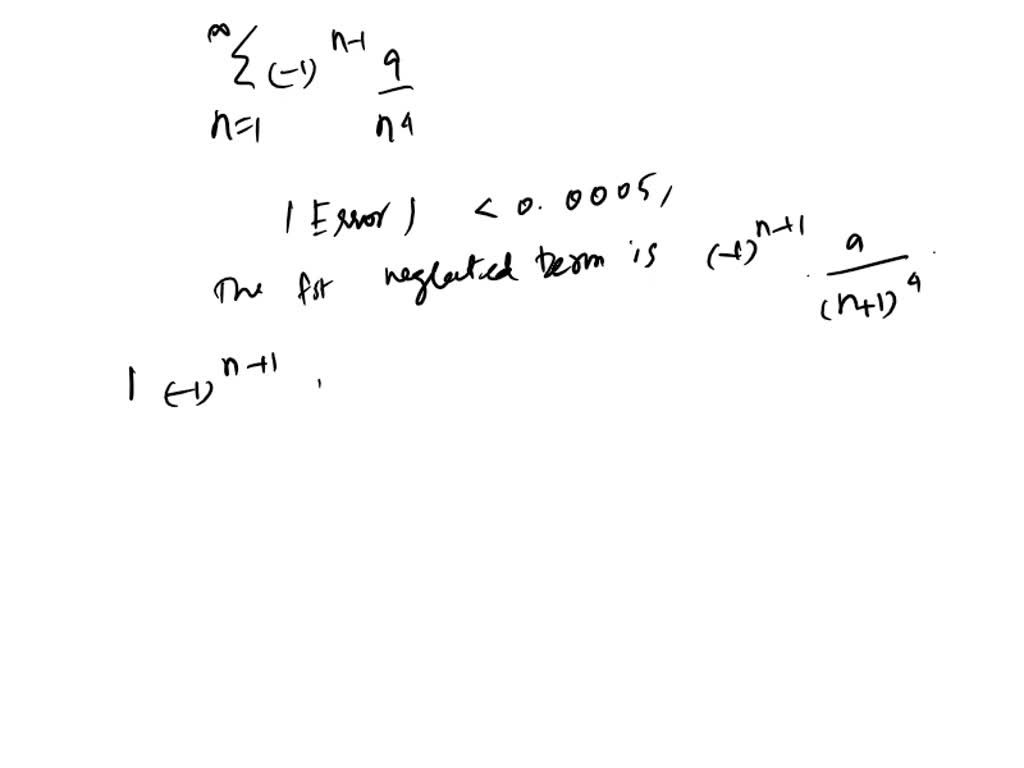 ∞ Σ (-1)^{n-1} 9/n^4
n=1
|Error| < 0.0005,
The fst neglected term is (-1)^{n+1} · 9/(n+1)^4 .
| (-1)^{n+1} .